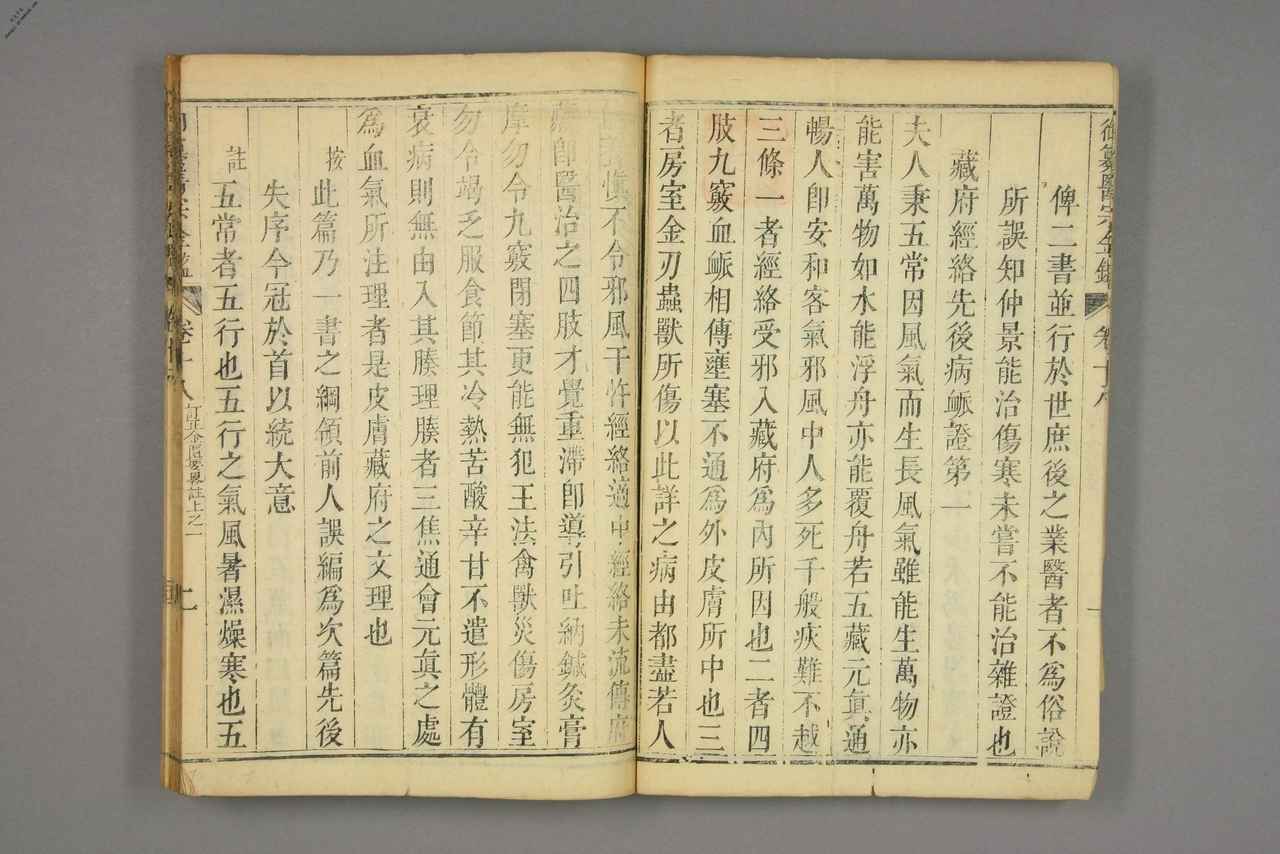 御纂醫宗金鑑
卷十八
俾二書並行於世庶後之業醫者不爲俗說
所誤知仲景能治傷寒未嘗不能治雜證也
藏府經絡先後病脈證第一
夫人秉五常因風氣而生長風氣雖能生萬物亦
能害萬物如水能浮舟亦能覆舟若五藏元眞通
暢人卽安和客氣邪風中人多死千般疢難不越
三條一者經絡受邪入藏府爲內所因也二者四
肢九竅血脈相傳壅塞不通爲外皮膚所中也三
者房室金刃蟲獸所傷以此詳之病由都盡若人
愼不令邪風干忤經絡適中經絡未流傳府
藏卽醫治之四肢才覺重滯卽導引吐納鍼灸膏
摩勿令九竅閉塞更能無犯王法禽獸災傷房室
勿令竭乏服食節其冷熱苦酸辛甘不遣形體有
衰病則無由入其腠理腠者三焦通會元眞之處
爲血氣所注理者是皮膚藏府之文理也
按此篇乃一書之綱領前人誤編爲次篇先後
失序今冠於首以統大意
註五常者五行也五行之氣風暑濕燥寒也五
卷十八
訂正金匱要畧註上之一